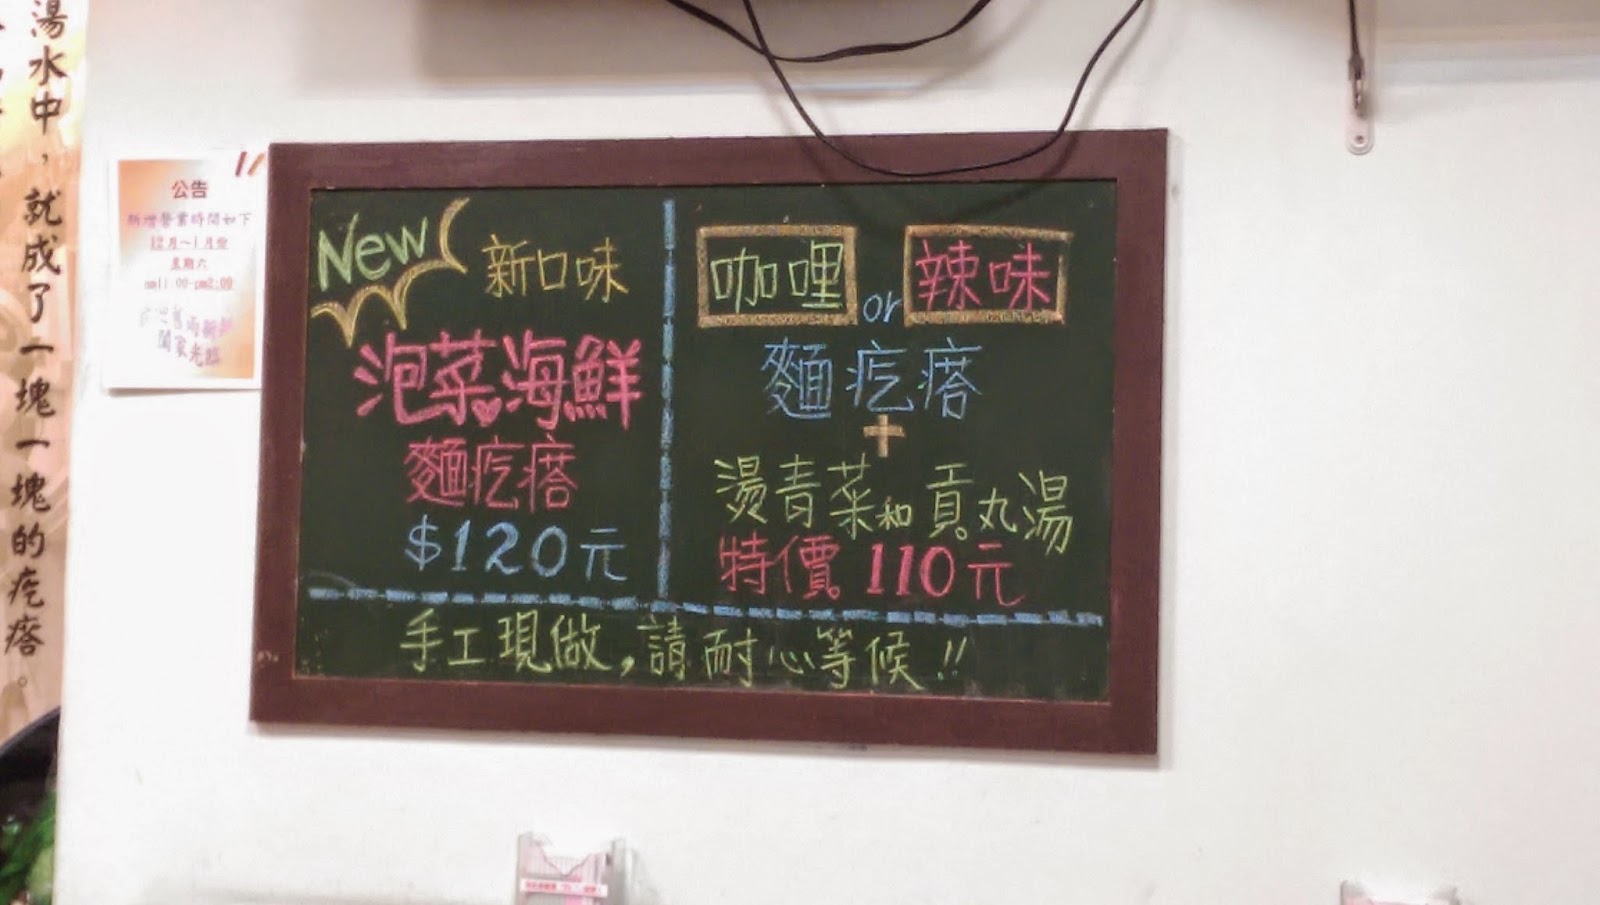 湯水中，就成了一塊一塊的疙瘩。
公告
新增營業時間如下
12月～1月份
星期六
am11:00-pm2:00
闔家光臨
New 新口味
泡菜海鮮
麵疙瘩
$120元
咖哩 or 辣味
麵疙瘩
+
燙青菜和貢丸湯
特價 110元
手工現做,請耐心等候!!